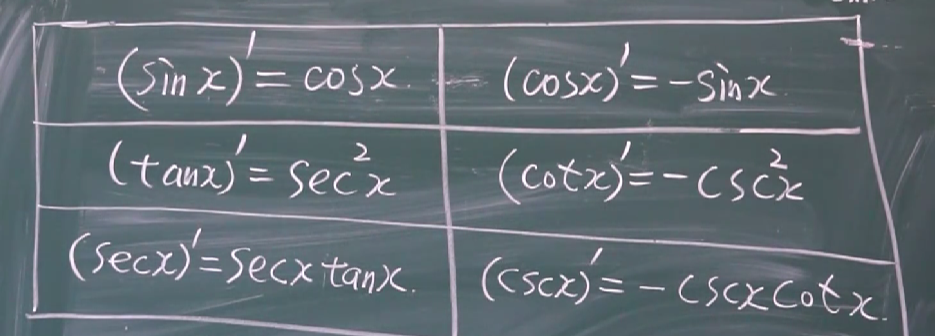 (sin x)' = cosx.
(cosx)' = -sinx.
(tanx)' = sec²x
(cotx)' = -csc²x
(secx)' = secx tanx.
(cscx)' = -cscx cotx.